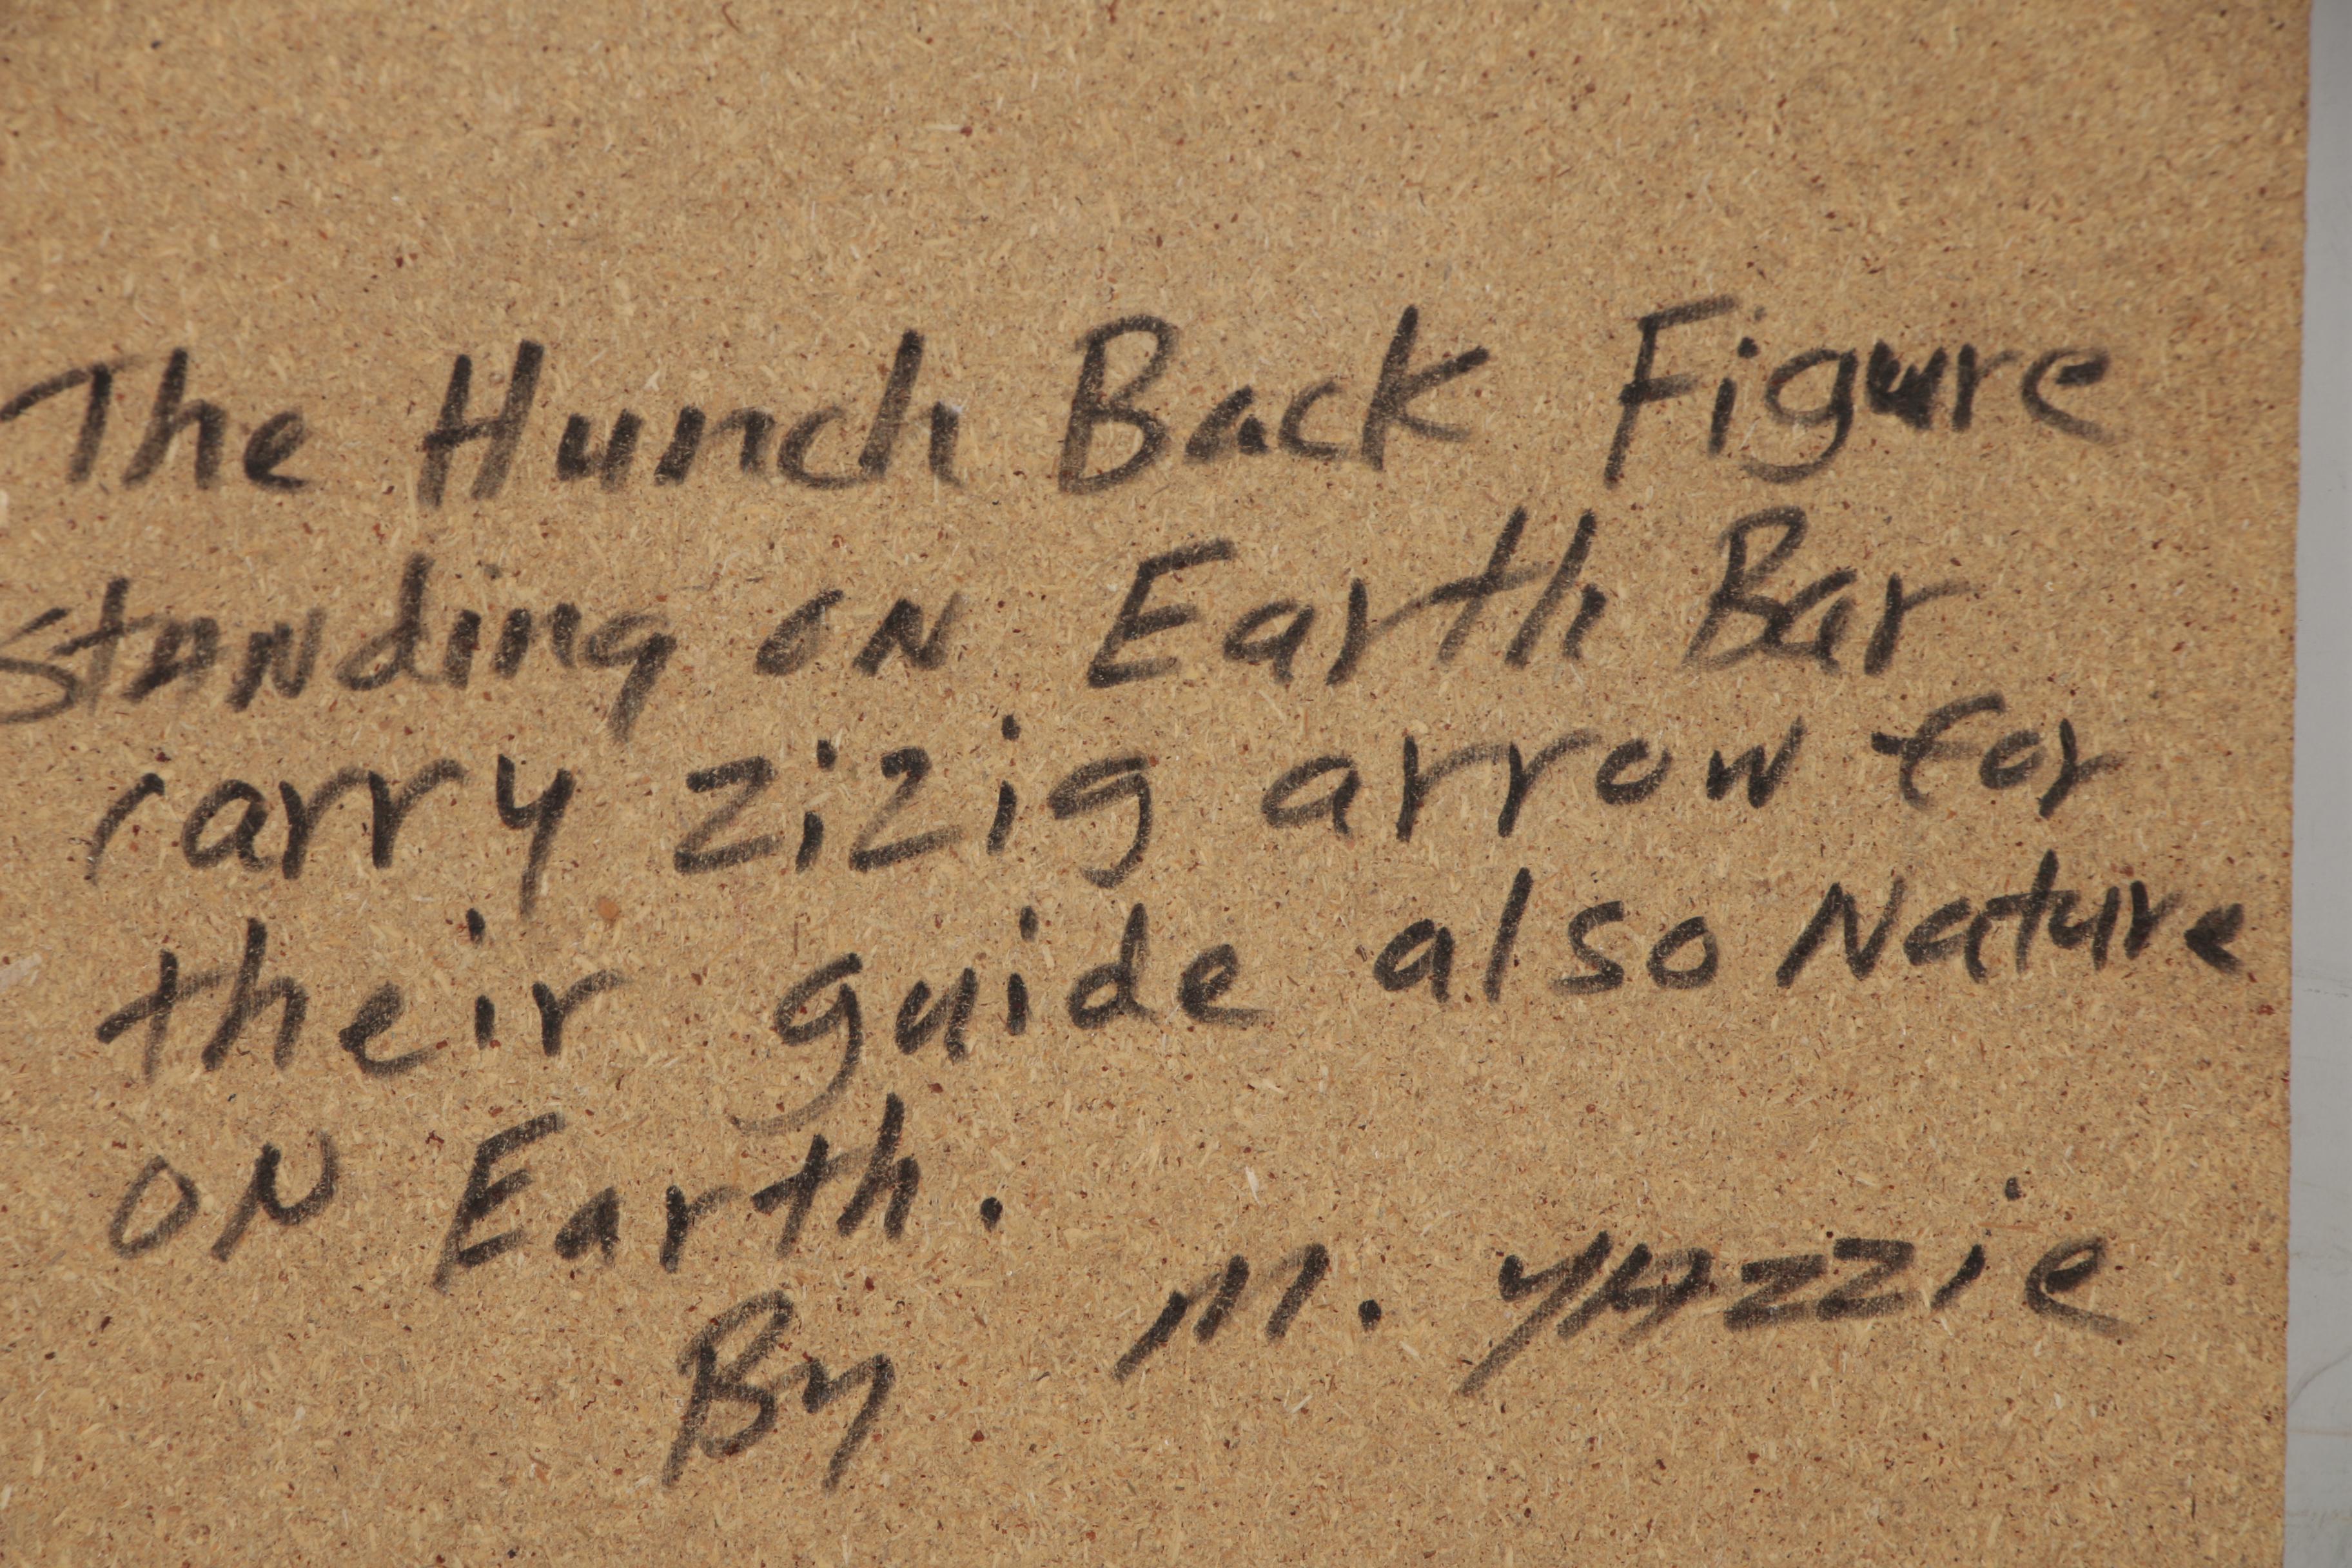 The Hunch Back Figure
standing oN Earth Bar
carry zizig arrow for
their guide also Nature
oN Earth.
By M. YAzzie